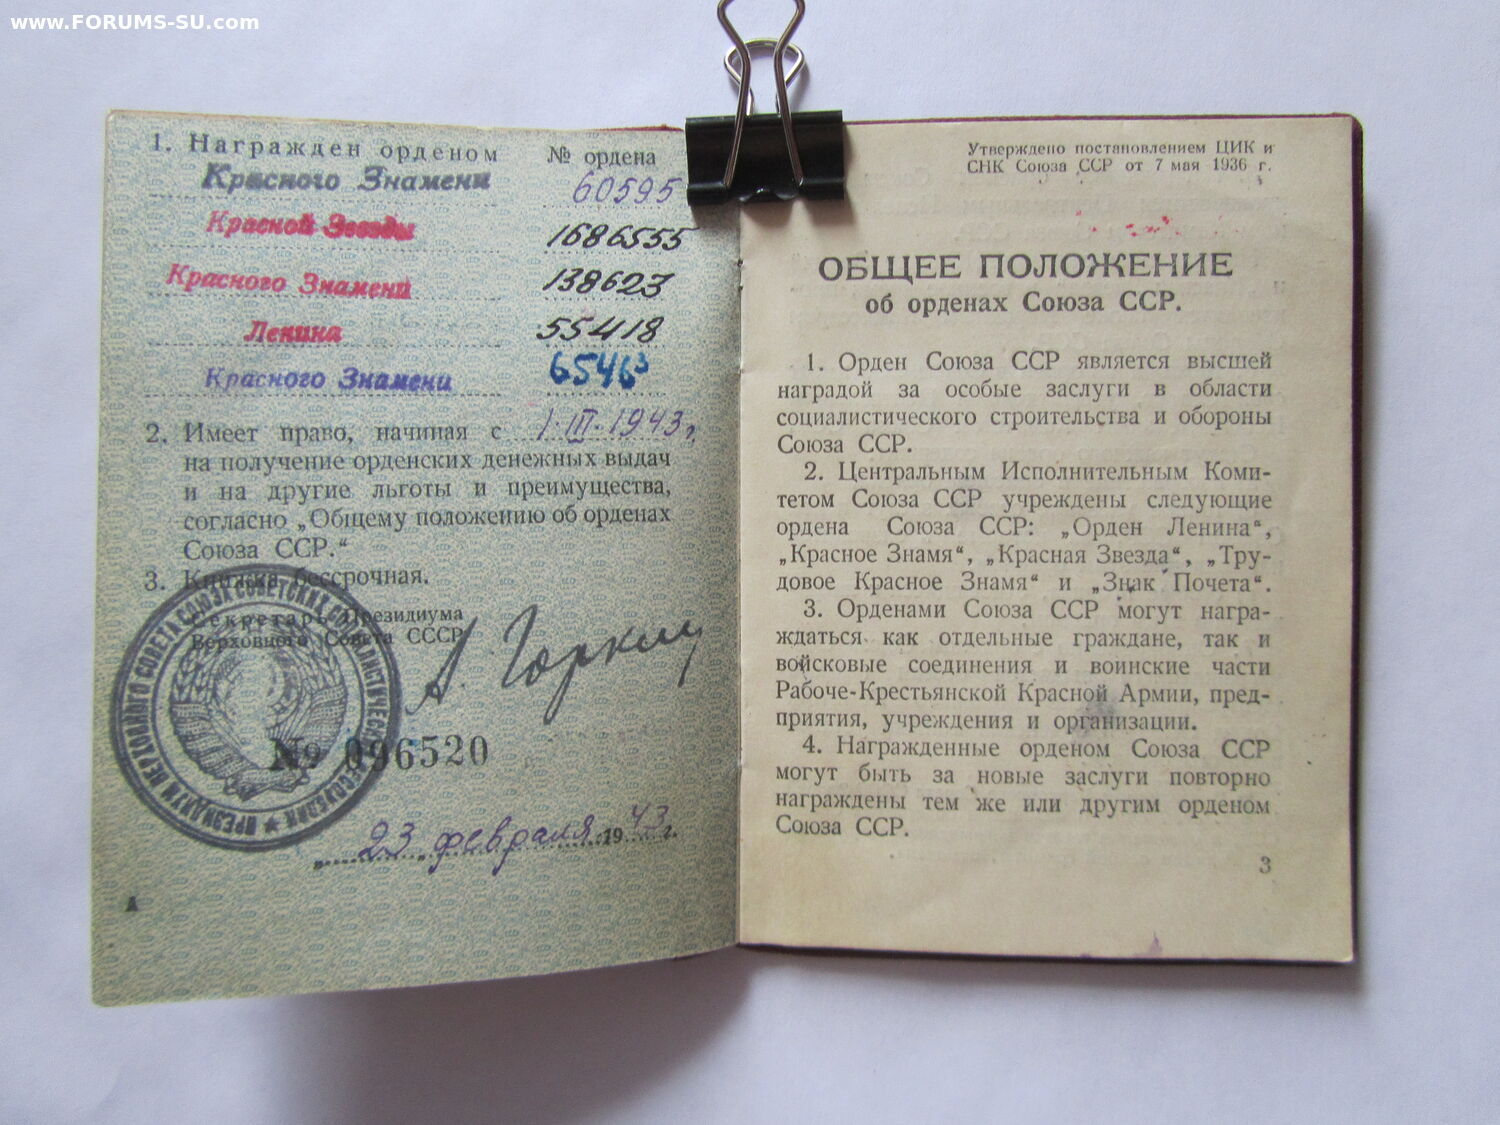 www.FORUMS-SU.com
1. Награжден орденом № ордена
Красного Знамени 60595
Красной Звезды 1686555
Красного Знамени 138623
Ленина 55418
Красного Знамени 65463
2. Имеет право, начиная с 1·III·1943 г.
на получение орденских денежных выдач
и на другие льготы и преимущества,
согласно „Общему положению об орденах
Союза ССР.“
3. Книжка бессрочная.
Секретарь Президиума
Верховного Совета СССР
А. Горкин
№ 096520
ПРЕЗИДИУМ ВЕРХОВНОГО СОВЕТА СОЮЗА СОВЕТСКИХ СОЦИАЛИСТИЧЕСКИХ РЕСПУБЛИК
„23„ февраля 1943 г.
А
Утверждено постановлением ЦИК и
СНК Союза ССР от 7 мая 1936 г.
ОБЩЕЕ ПОЛОЖЕНИЕ
об орденах Союза ССР.
1. Орден Союза ССР является высшей
наградой за особые заслуги в области
социалистического строительства и обороны
Союза ССР.
2. Центральным Исполнительным Коми-
тетом Союза ССР учреждены следующие
ордена Союза ССР: „Орден Ленина“,
„Красное Знамя“, „Красная Звезда“, „Тру-
довое Красное Знамя“ и „Знак Почета“.
3. Орденами Союза ССР могут награ-
ждаться как отдельные граждане, так и
войсковые соединения и воинские части
Рабоче-Крестьянской Красной Армии, пред-
приятия, учреждения и организации.
4. Награжденные орденом Союза ССР
могут быть за новые заслуги повторно
награждены тем же или другим орденом
Союза ССР.
3